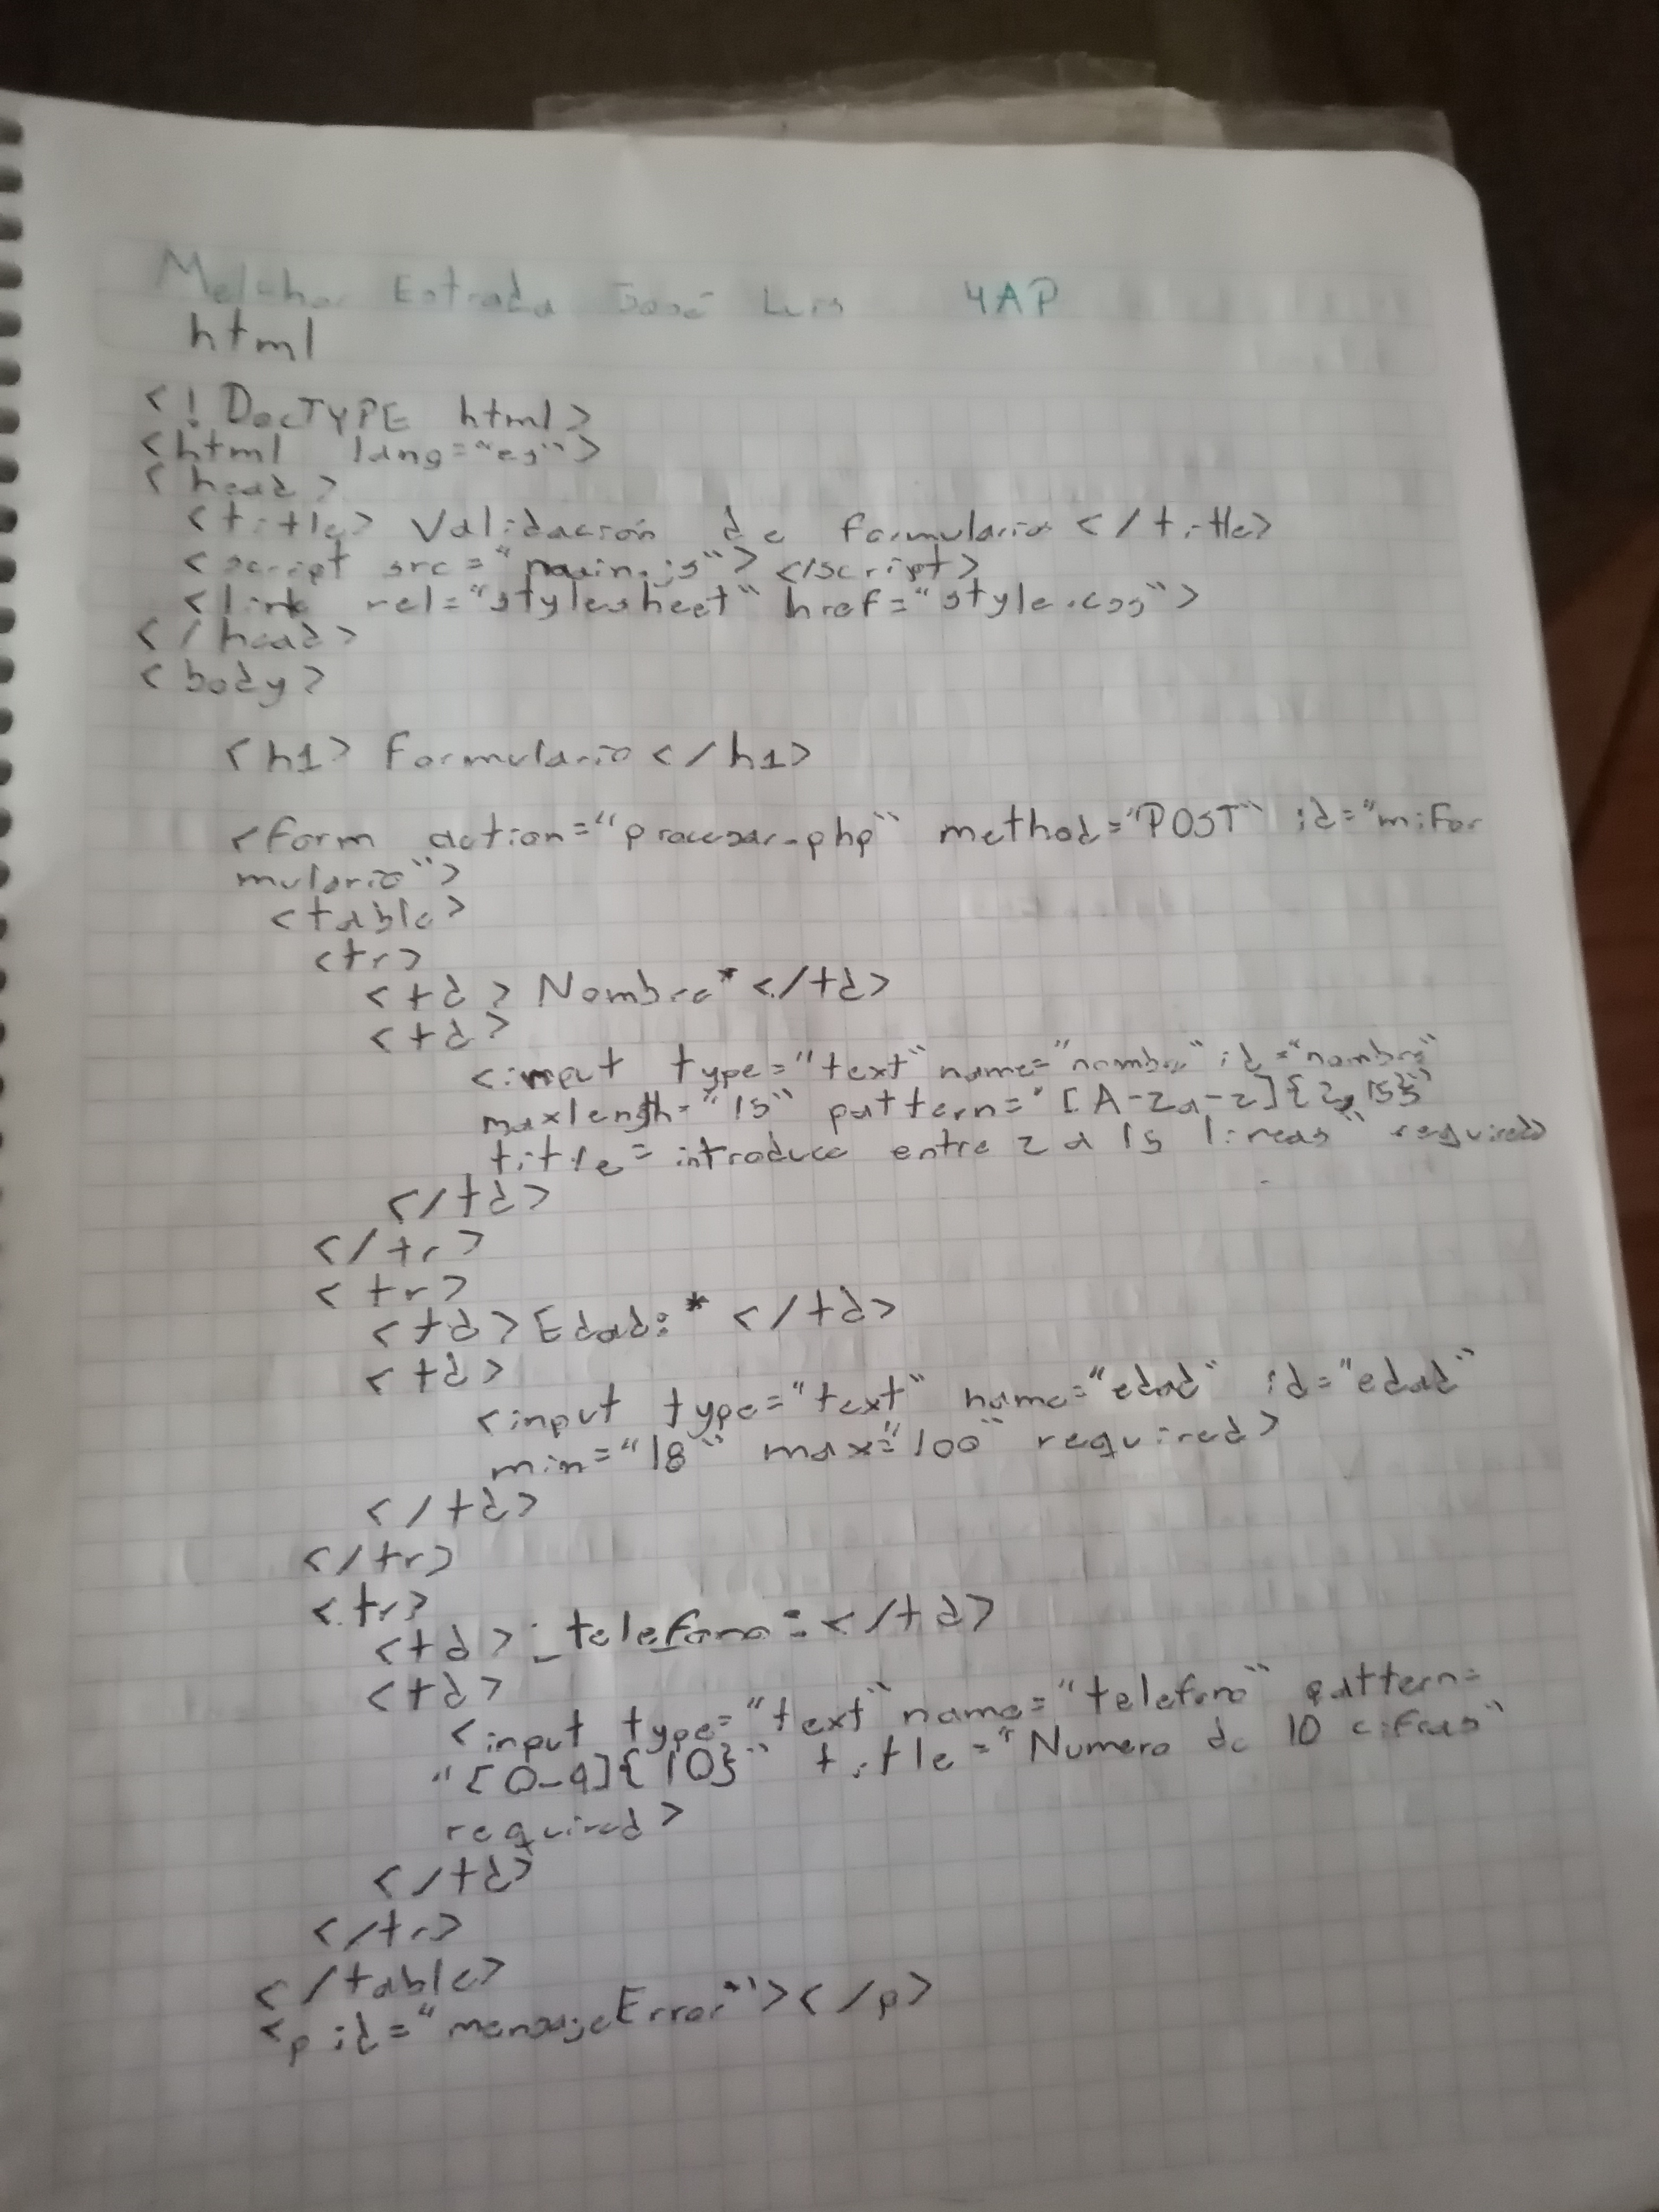 Melchor Estrada José Luis 4AP
html
<! DocTYPE html>
<html lang="es">
<head>
<title> Validación de formularios </title>
<script src="main.js"></script>
<link rel="stylesheet" href="style.css">
</head>
<body>
<h1> Formulario </h1>
<form action="procesar.php" method="POST" id="mifor
mulario">
<table>
<tr>
<td> Nombre* </td>
<td>
<input type="text" name="nombre" id="nombre"
maxlength="15" pattern="[A-Za-z]{2,15}"
title= introduce entre 2 a 15 lineas" required>
</td>
</tr>
<tr>
<td> Edad:* </td>
<td>
<input type="text" name="edad" id="edad"
min="18" max="100" required>
</td>
</tr>
<tr>
<td> telefono: </td>
<td>
<input type="text" name="telefono" pattern=
"[0-9]{10}" title="Numero de 10 cifras"
required>
</td>
</tr>
</table>
<p id="mensajeError"></p>